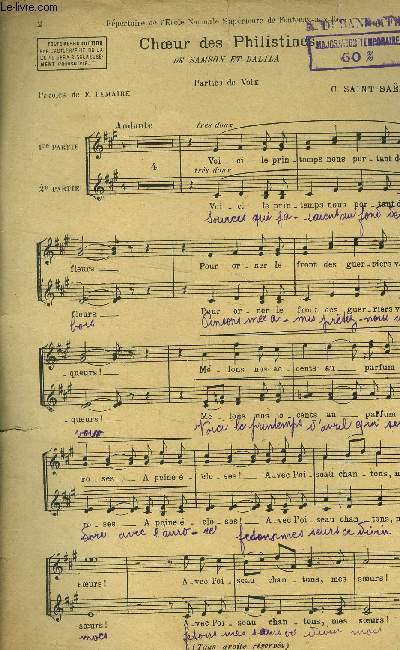 www.le-livre.com
2
Répertoire de l'École Normale Supérieure de Fontenay-aux-Roses
Chœur des Philistines
DE SAMSON ET DALILA
MAJORATION TEMPORAIRE
60 %
Parties de Voix
Paroles de F. LEMAIRE
C. SAINT-SAË
Andante
très doux
1re PARTIE
4
Voi - ci le prin - temps nous por - tant d
très doux
2e PARTIE
Voi - ci le prin - temps nous por - tant d
Sources qui
au fond de
fleurs
Pour or - ner le front des guer - riers v
fleurs
Pour or - ner le front des guer - riers v
bois
mes a - mis prêtez - nous
- queurs!
Mê - lons nos ac - cents au parfum
- queurs!
Mê - lons nos ac - cents au parfum
voix
Voici le printemps d'avril qui
ro - ses A peine é - clo - ses! A - vec l'oi - seau chan - tons, m
ro - ses A peine é - clo - ses! A - vec l'oi - seau chan - tons, m
avec mes sœurs ce
sœurs! A - vec l'oi - seau chan - tons, mes sœurs!
sœurs! A - vec l'oi - seau chan - tons, mes sœurs!
mois mes sœurs ce mois
(Tous droits réservés)